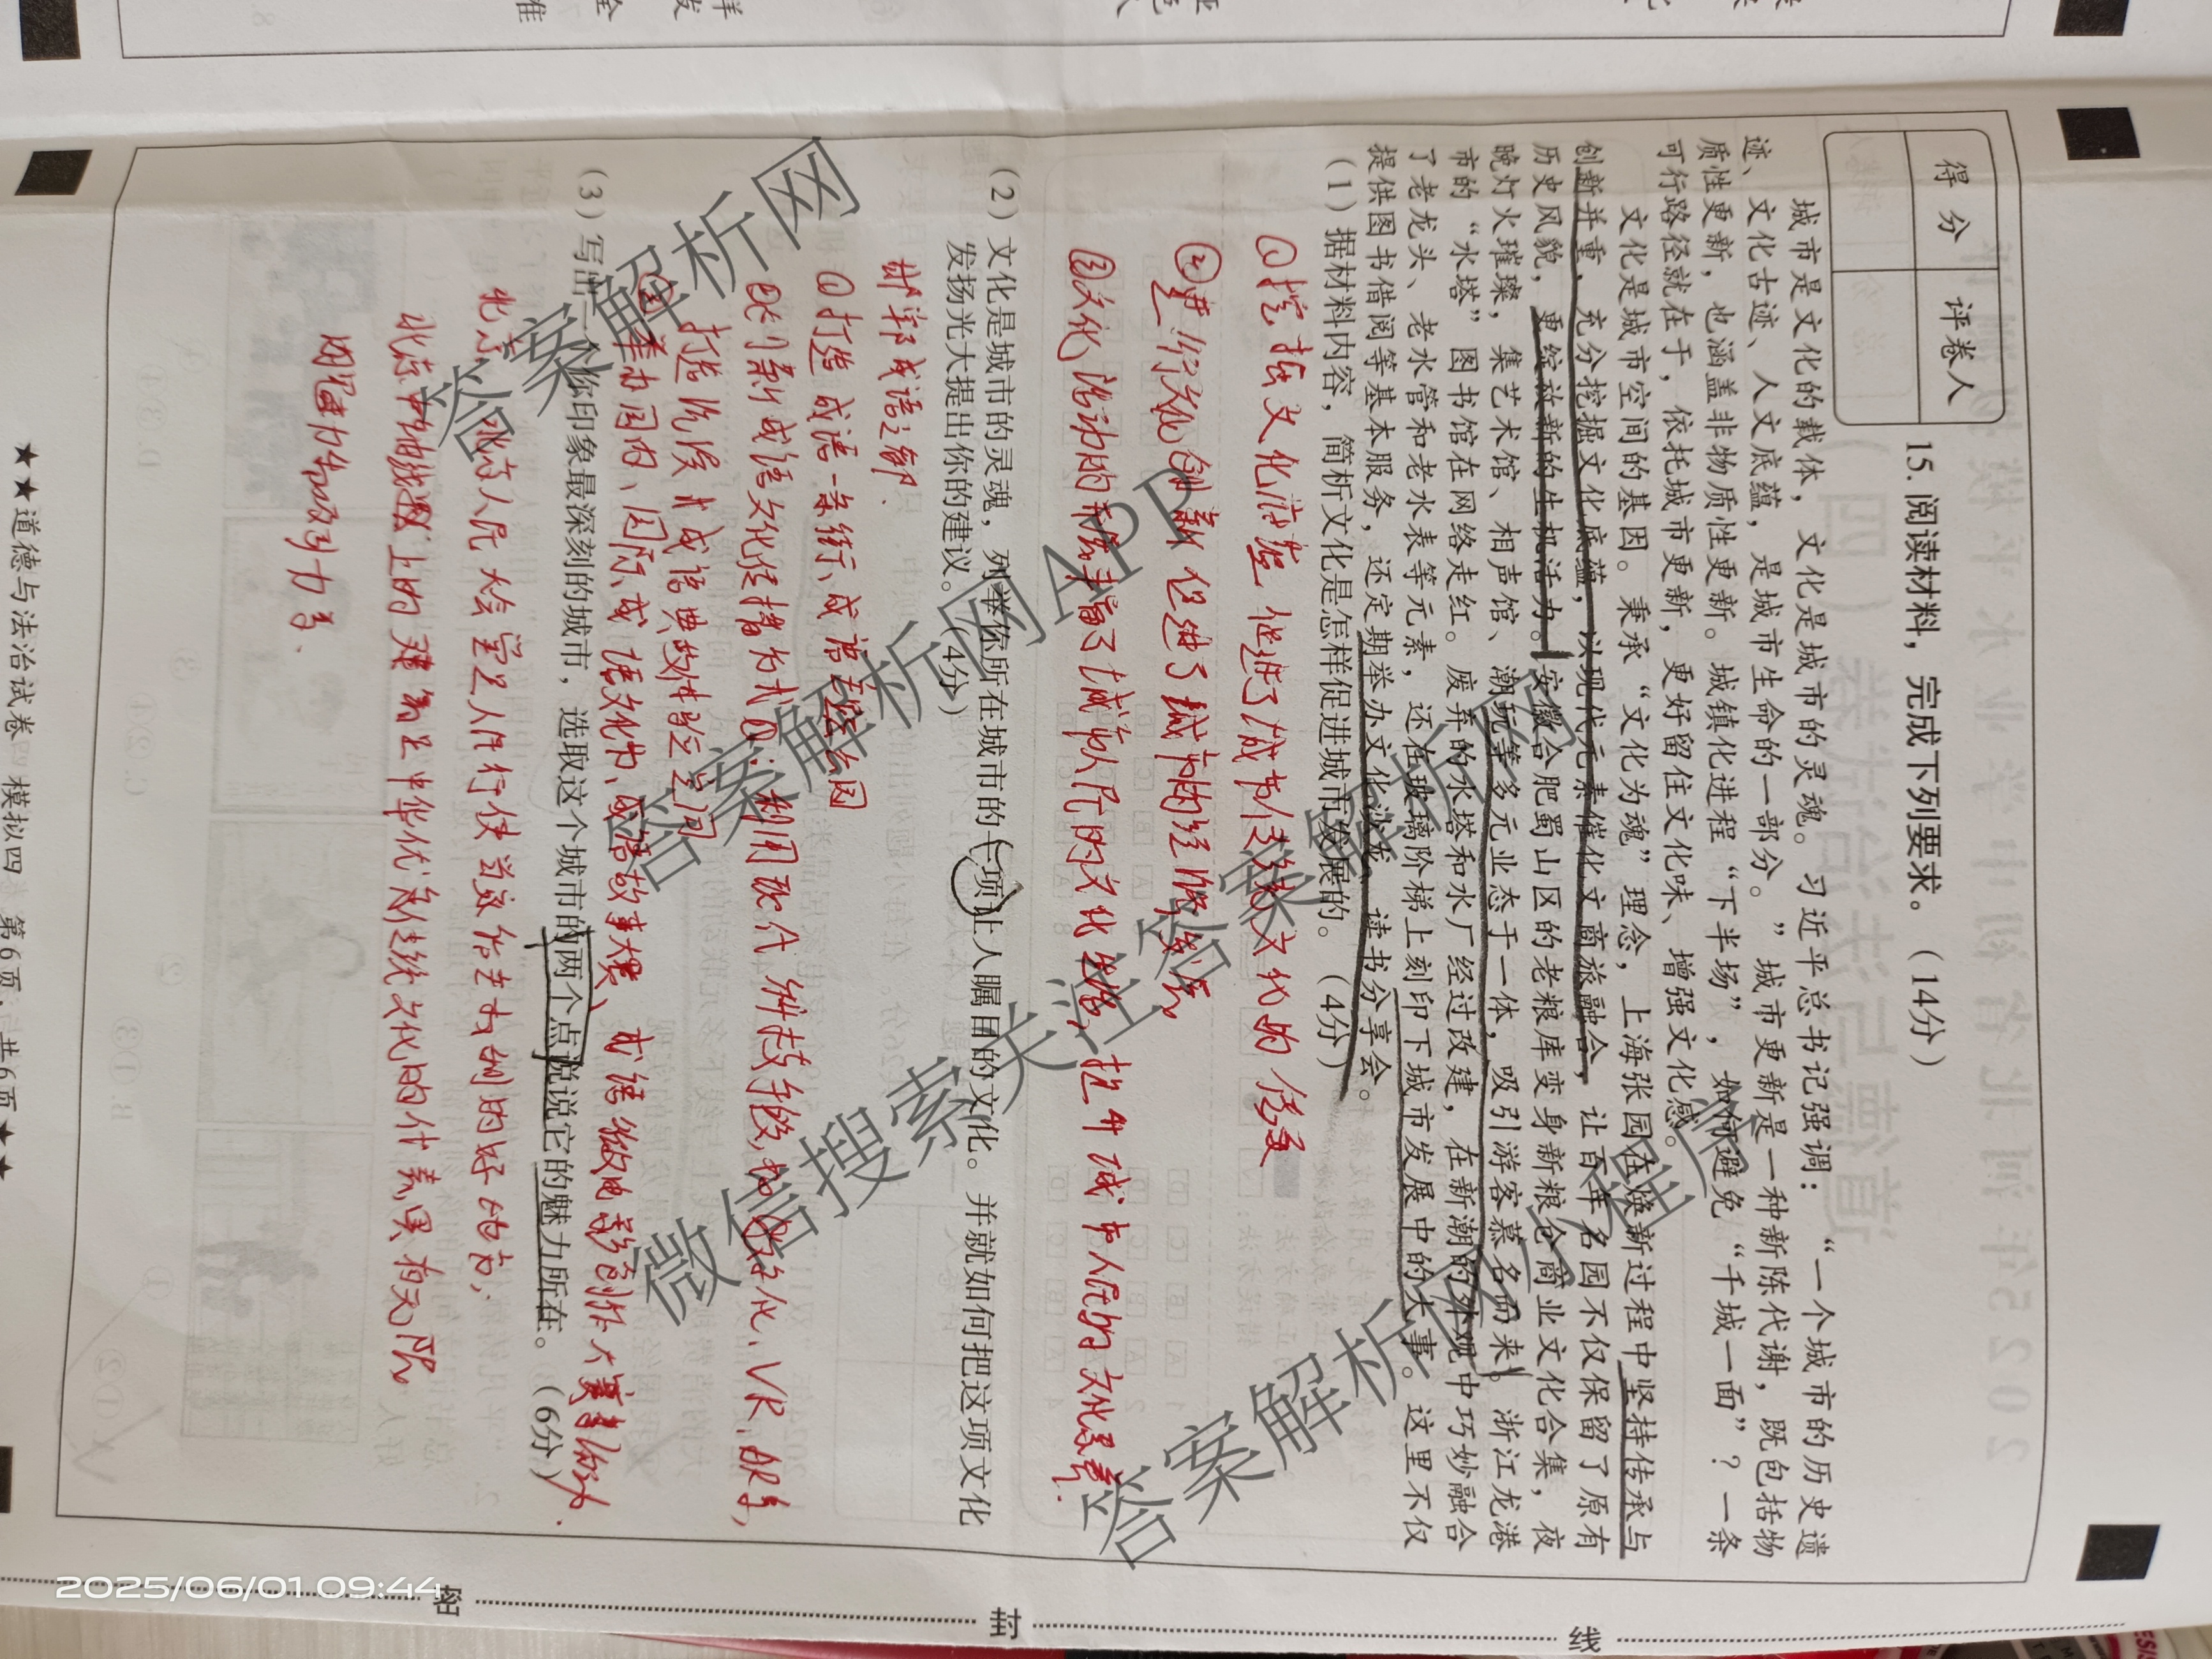 得 分
评卷人
15. 阅读材料，完成下列要求。（14分）
城市是文化的载体，文化是城市的灵魂。习近平总书记强调：“一个城市的历史遗
迹、文化古迹、人文底蕴，是城市生命的一部分。”城市更新是一种新陈代谢，既包括物
质性更新，也涵盖非物质性更新。城镇化进程“下半场”，如何避免“千城一面”？一条
可行路径就在于，依托城市更新，更好留住文化味、增强文化感。
文化是城市空间的基因。秉承“文化为魂”理念，上海张园在焕新过程中坚持传承与
创新并重，充分挖掘文化底蕴，以现代元素催化文商旅融合，让百年名园不仅保留了原有
历史风貌，更绽放新的生机活力。安徽合肥蜀山区的老粮库变身新粮仓商业文化合集，夜
晚灯火璀璨，集艺术馆、相声馆、潮玩等多元业态于一体，吸引游客慕名而来。浙江龙港
市的“水塔”图书馆在网络走红。废弃的水塔和水厂经过改建，在新潮的外观中巧妙融合
了老龙头、老水管和老水表等元素，还在玻璃阶梯上刻印下城市发展中的大事。这里不仅
提供图书借阅等基本服务，还定期举办文化沙龙、读书分享会。
（1）据材料内容，简析文化是怎样促进城市发展的。（4分）
①挖掘文化底蕴 促进了城市传统文化的传承
②进行文化创新 促进了城市的经济发展
③文化活动的和丰富了城市人民的文化生活，提升城市人民的文化素养.
（2）文化是城市的灵魂，列举你所在城市的一项让人瞩目的文化。并就如何把这项文化
发扬光大提出你的建议。（4分）
邯郸成语之都.
①打造成语一条街、成语主题公园
②创新成语文化传播方式：利用现代科技手段，如数字化、VR、AR等，
打造沉浸式成语典故体验空间
③举办国内、国际成语文化节、成语故事擂、成语微电影创作大赛等活动.
（3）写出一个你印象最深刻的城市，选取这个城市的两个点说说它的魅力所在。（6分）
北京 北京人民大会堂是人民行使当家作主权利的好地方；
北京中轴线上的建筑是中华优秀传统文化的代表具有无限
凝聚力和吸引力等.
★★道德与法治试卷 模拟四 第6页，共6页★★
密
封
线
答案解析网
答案解析网APP
微信搜索关注答案解析网
答案解析网
2025/06/01 09:44